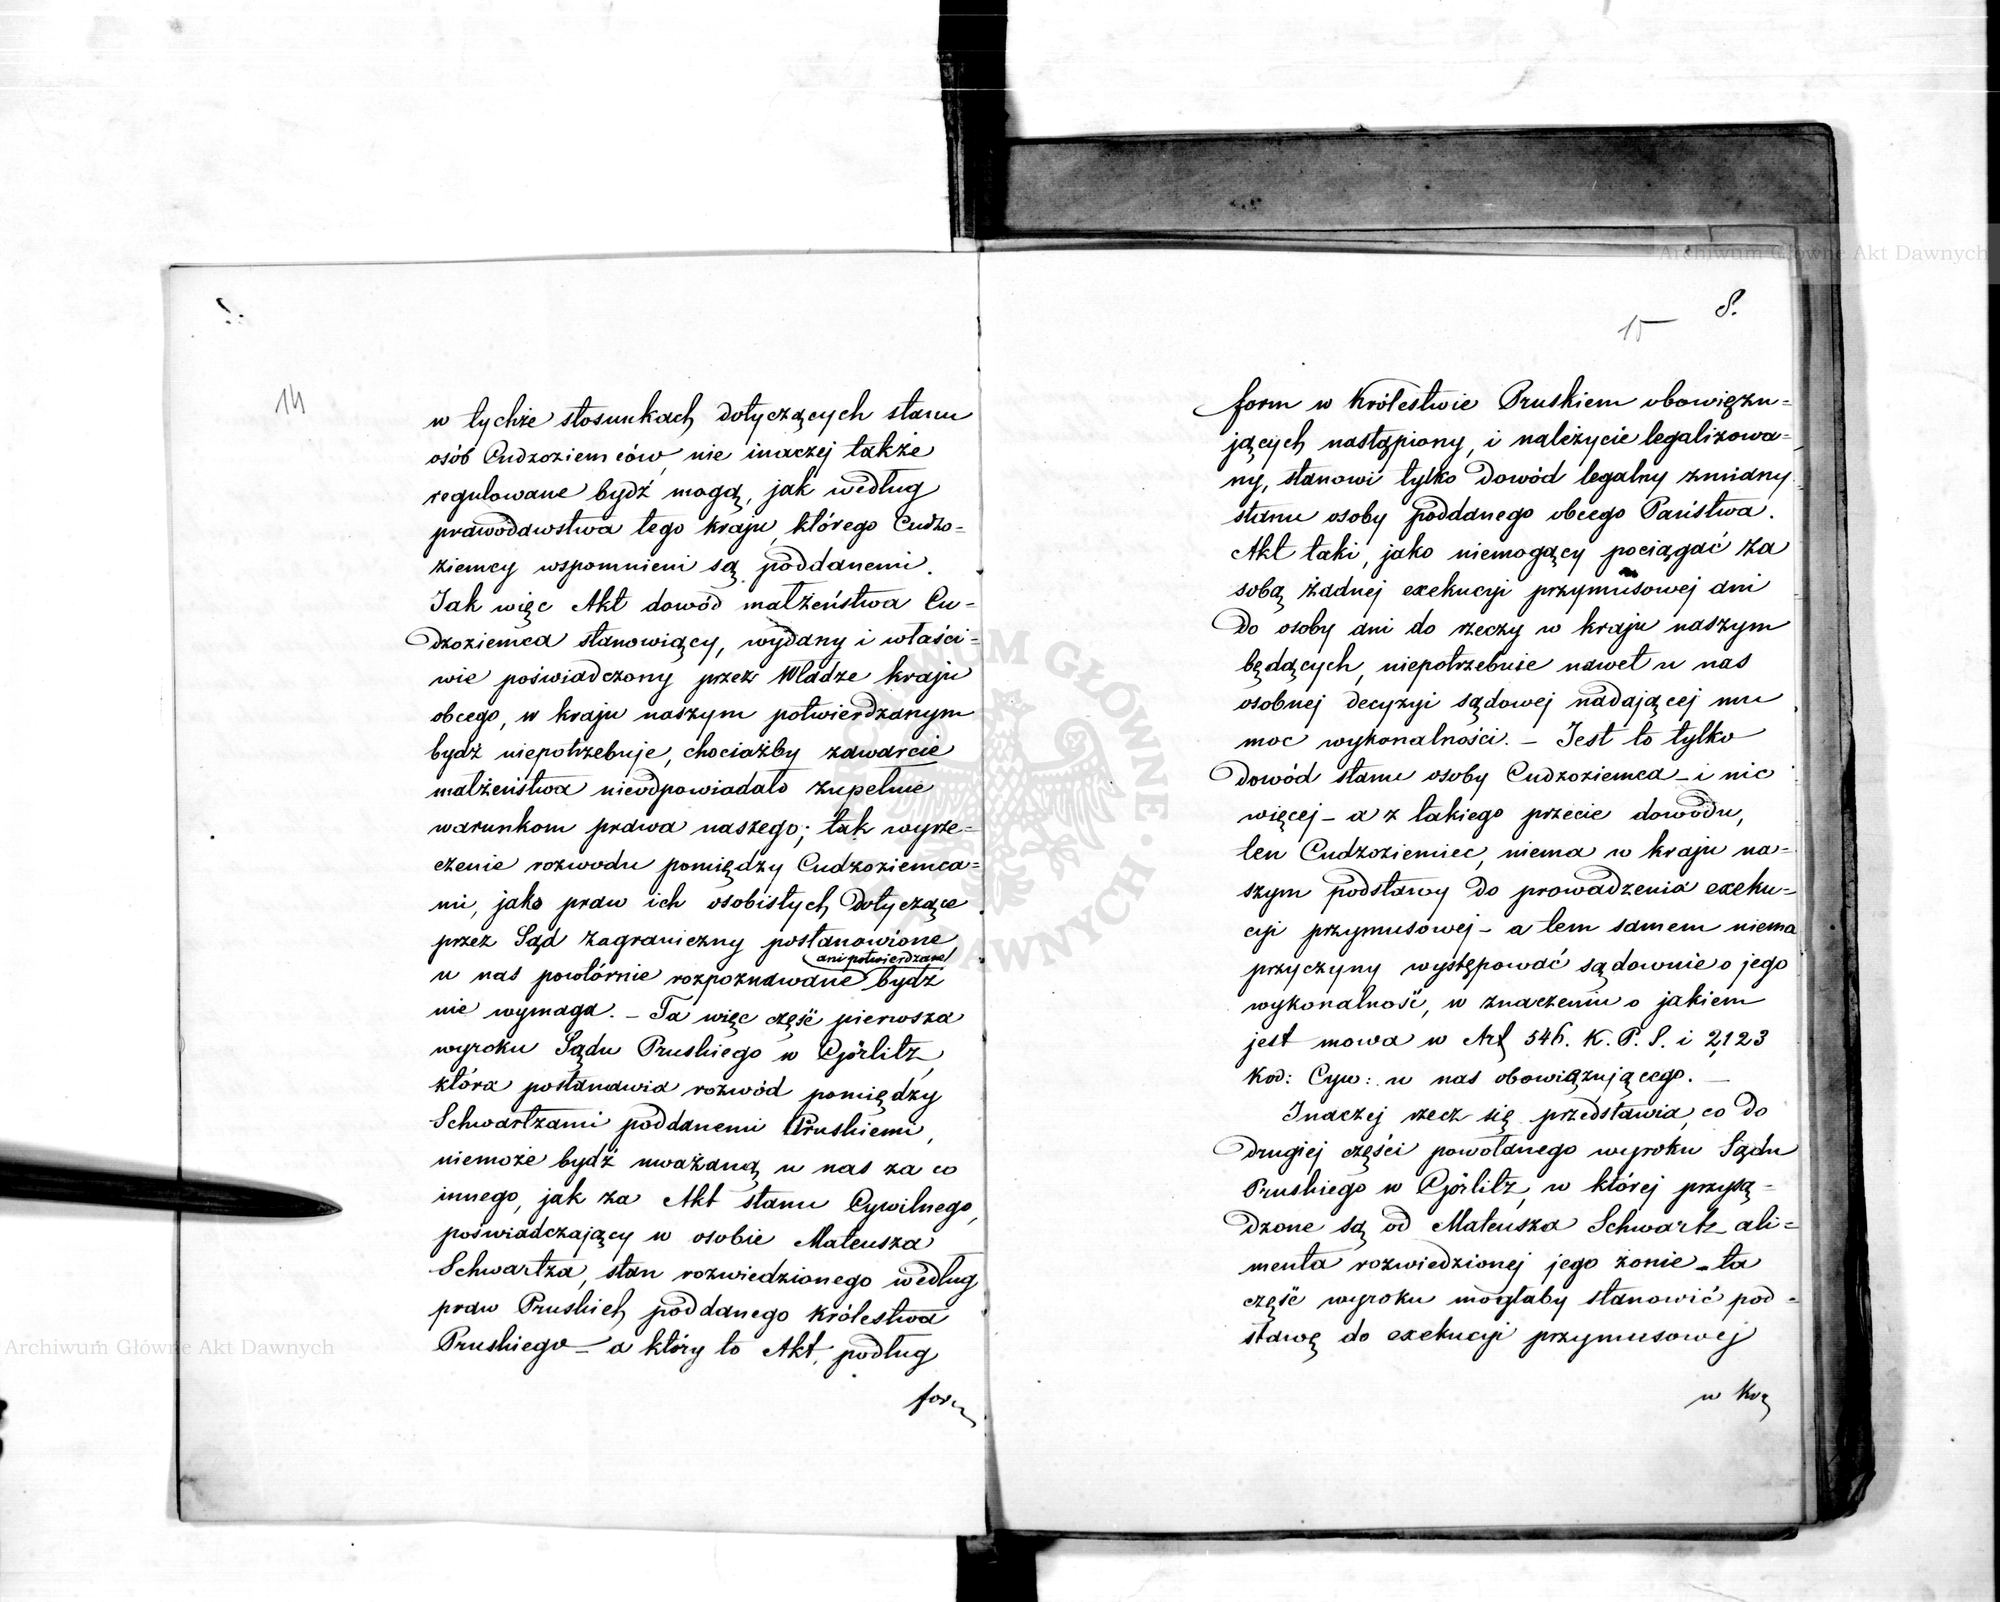 14
w tychże stosunkach dotyczących stanu
osób Cudzoziemców, nie inaczej także
regulowane bydź mogą, jak według
prawodawstwa tego kraju, którego Cudzo-
ziemcy wspomnieni są poddanemi.
Jak więc Akt dowód małżeństwa Cu-
dzoziemca stanowiący, wydany i właści-
wie poświadczony przez Władze kraju
obcego, w kraju naszym potwierdzanym
bydź niepotrzebuje, chociażby zawarcie
małżeństwa nieodpowiadało zupełnie
warunkom prawa naszego; tak wyrze-
czenie rozwodu pomiędzy Cudzoziemca-
mi, jako praw ich osobistych dotyczące
przez Sąd zagraniczny postanowione,
ani potwierdzane
u nas powtórnie rozpoznawane bydź
nie wymaga. – Ta więc część pierwsza
wyroku Sądu Pruskiego w Görlitz,
która postanawia rozwód pomiędzy
Schwartzami poddanemi Pruskiemi,
niemoże bydź uważaną u nas za co
innego, jak za Akt stanu Cywilnego,
poświadczający w osobie Mateusza
Schwartza, stan rozwiedzionego według
praw Pruskich poddanego Królestwa
Pruskiego – a który to Akt, podług
form
15 8.
form w Królestwie Pruskiem obowięzu-
jących nastąpiony, i należycie legalizowa-
ny, stanowi tylko dowód legalny zmiany
stanu osoby poddanego obcego Państwa.
Akt taki, jako niemogący pociągać za
sobą żadnej exekucyi przymusowej ani
do osoby ani do rzeczy w kraju naszym
będących, niepotrzebuje nawet u nas
osobnej decyzyi sądowej nadającej mu
moc wykonalności. – Jest to tylko
dowód stanu osoby Cudzoziemca – i nic
więcej – a z takiego przecie dowodu,
ten Cudzoziemiec, niema w kraju na-
szym podstawy do prowadzenia exeku-
cyi przymusowej – a tem samem niema
przyczyny występować sądownie o jego
wykonalność, w znaczeniu o jakiem
jest mowa w Art 546. K. P. S. i 2,123
Kod: Cyw: u nas obowiązującego. –
Inaczej rzecz się przedstawia, co do
drugiej części powołanego wyroku Sądu
Pruskiego w Görlitz, w której przysą-
dzone są od Mateusza Schwartz ali-
menta rozwiedzionej jego żonie – ta
część wyroku mogłaby stanowić pod-
stawę do exekucyi przymusowej
Archiwum Główne Akt Dawnych
Archiwum Główne Akt Dawnych